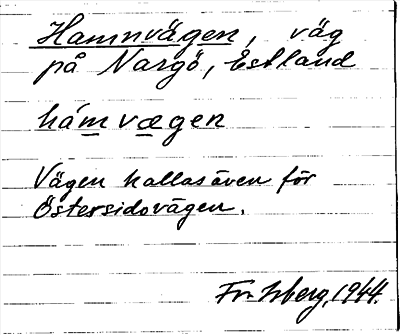 Hamnvägen, väg
på Nargö, Estland
hámvægen
Vägen kallas även för
Östersidovägen.
1944.